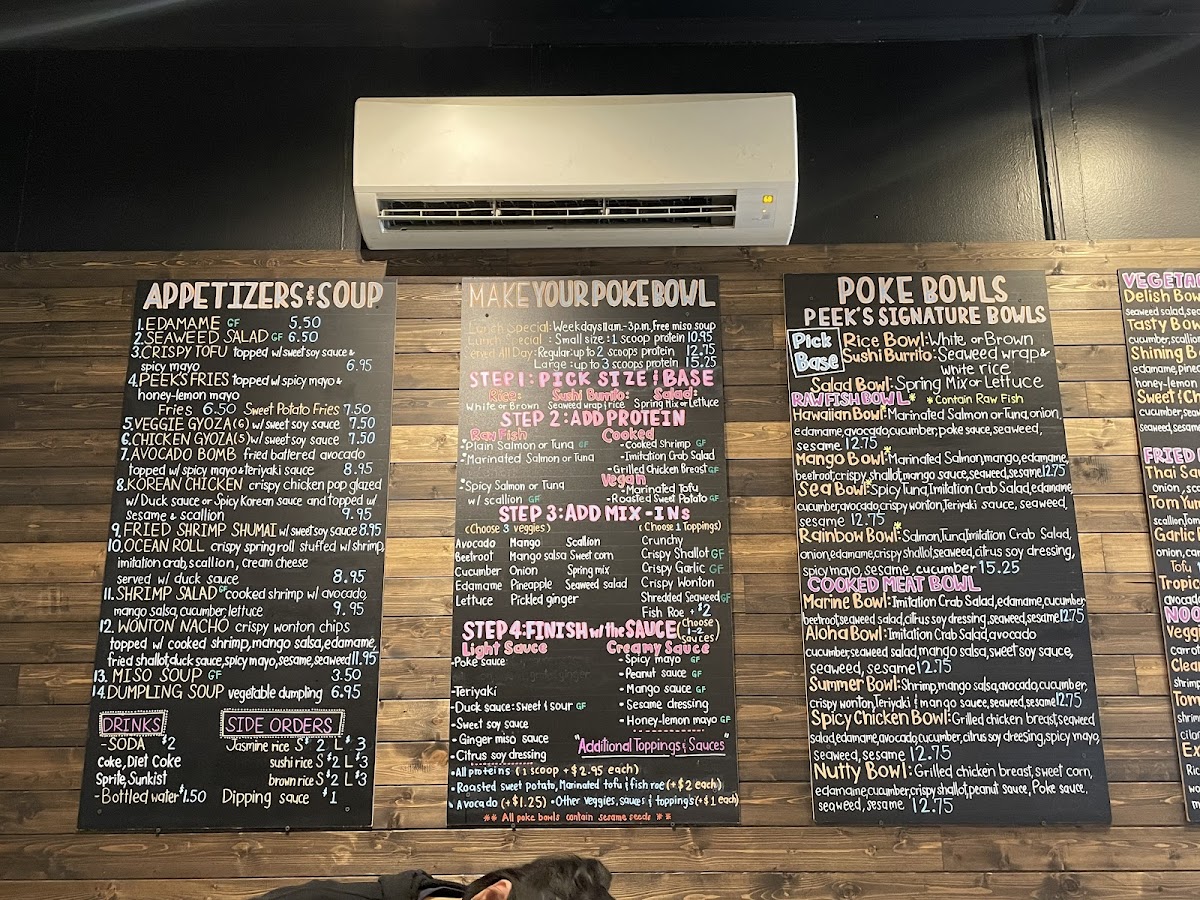 APPETIZERS & SOUP
1. EDAMAME GF 5.50
2. SEAWEED SALAD GF 6.50
3. CRISPY TOFU topped w/ sweet soy sauce &
spicy mayo 6.95
4. PEEK'S FRIES topped w/ spicy mayo &
honey-lemon mayo
Fries 6.50 Sweet Potato Fries 7.50
5. VEGGIE GYOZA (6) w/ sweet soy sauce 7.50
6. CHICKEN GYOZA (5) w/ sweet soy sauce 7.50
7. AVOCADO BOMB fried battered avocado
topped w/ spicy mayo & teriyaki sauce 8.95
8. KOREAN CHICKEN crispy chicken pop glazed
w/ Duck sauce or Spicy Korean sauce and topped w/
sesame & scallion 9.95
9. FRIED SHRIMP SHUMAI w/ sweet soy sauce 8.95
10. OCEAN ROLL crispy spring roll stuffed w/ shrimp,
imitation crab, scallion, cream cheese
served w/ duck sauce 8.95
11. SHRIMP SALAD GF cooked shrimp w/ avocado,
mango salsa, cucumber, lettuce 9.95
12. WONTON NACHO crispy wonton chips
topped w/ cooked shrimp, mango salsa, edamame,
fried shallot, duck sauce, spicy mayo, sesame, seaweed 11.95
13. MISO SOUP GF 3.50
14. DUMPLING SOUP vegetable dumpling 6.95
DRINKS
- SODA $2
Coke, Diet Coke
Sprite, Sunkist
- Bottled water $1.50
SIDE ORDERS
Jasmine rice S $2 L $3
sushi rice S $2 L $3
brown rice S $2 L $3
Dipping sauce $1
MAKE YOUR POKE BOWL
Lunch Special: Weekdays 11am.-3p.m, Free miso soup
Lunch Special: Small size: 1 scoop protein 10.95
Served All Day: Regular: up to 2 scoops protein 12.75
Large: up to 3 scoops protein 15.25
STEP 1: PICK SIZE & BASE
Rice: Sushi Burrito: Salad:
White or Brown Seaweed wrap & rice Spring Mix or Lettuce
STEP 2: ADD PROTEIN
Raw Fish
*Plain Salmon or Tuna GF
*Marinated Salmon or Tuna
*Spicy Salmon or Tuna
w/ scallion GF
Cooked
- Cooked Shrimp GF
- Imitation Crab Salad
- Grilled Chicken Breast GF
Vegan
- Marinated Tofu
- Roasted Sweet Potato GF
STEP 3: ADD MIX-INs
(Choose 3 veggies) (Choose 1 Toppings)
Avocado Mango Scallion Crunchy
Beetroot Mango salsa Sweet corn Crispy Shallot GF
Cucumber Onion Spring mix Crispy Garlic GF
Edamame Pineapple Seaweed salad Crispy Wonton
Lettuce Pickled ginger Shredded Seaweed GF
Fish Roe + $2
STEP 4: FINISH w/ the SAUCE (Choose 1-2 sauces)
Light Sauce
- Poke sauce
- Teriyaki
- Duck sauce: Sweet & sour GF
- Sweet soy sauce
- Ginger miso sauce
- Citrus soy dressing
Creamy Sauce
- Spicy mayo GF
- Peanut sauce GF
- Mango sauce GF
- Sesame dressing
- Honey-lemon mayo GF
"Additional Toppings & Sauces"
- All proteins (1 scoop + $2.95 each)
- Roasted sweet potato, Marinated tofu & fish roe (+ $2 each)
* Avocado (+ $1.25) • Other veggies, sauces & toppings (+ $1 each)
** All poke bowls contain sesame seeds **
POKE BOWLS
PEEK'S SIGNATURE BOWLS
Pick Base
Rice Bowl: White or Brown
Sushi Burrito: Seaweed wrap &
white rice
Salad Bowl: Spring Mix or Lettuce
RAW FISH BOWL* *Contain Raw Fish
Hawaiian Bowl: Marinated Salmon or Tuna, onion,
edamame, avocado, cucumber, poke sauce, seaweed,
sesame 12.75
Mango Bowl:* Marinated Salmon, mango, edamame,
beetroot, crispy shallot, mango sauce, seaweed, sesame 12.75
Sea Bowl:* Spicy Tuna, Imitation Crab Salad, edamame
cucumber, avocado, crispy wonton, Teriyaki sauce, seaweed,
sesame 12.75
Rainbow Bowl:* Salmon, Tuna, Imitation Crab Salad,
onion, edamame, crispy shallot, seaweed, citrus soy dressing,
spicy mayo, sesame, cucumber 15.25
COOKED MEAT BOWL
Marine Bowl: Imitation Crab Salad, edamame, cucumber
beetroot, seaweed salad, citrus soy dressing, seaweed, sesame 12.75
Aloha Bowl: Imitation Crab Salad, avocado
cucumber, seaweed salad, mango salsa, sweet soy sauce,
seaweed, sesame 12.75
Summer Bowl: Shrimp, mango salsa, avocado, cucumber,
crispy wonton, Teriyaki & mango sauce, seaweed, sesame 12.75
Spicy Chicken Bowl: Grilled chicken breast, seaweed
salad, edamame, avocado, cucumber, citrus soy dressing, spicy mayo,
seaweed, sesame 12.75
Nutty Bowl: Grilled chicken breast, sweet corn,
edamame, cucumber, crispy shallot, peanut sauce, Poke sauce,
seaweed, sesame 12.75
VEGETA
Delish Bow
seaweed salad, sea
Tasty Bow
cucumber, scallion
Shining B
edamame, pinea
honey-lemon
Sweet & Ch
cucumber, seaw
seaweed, sesam
FRIED
Thai Sa
onion, sc
Tom Yum
scallion, tom
Garlic
onion, car
Tofu
Tropic
avocado
NOO
Vegg
carrot
Clea
shrimp
Tom
shrim
cila
Ex